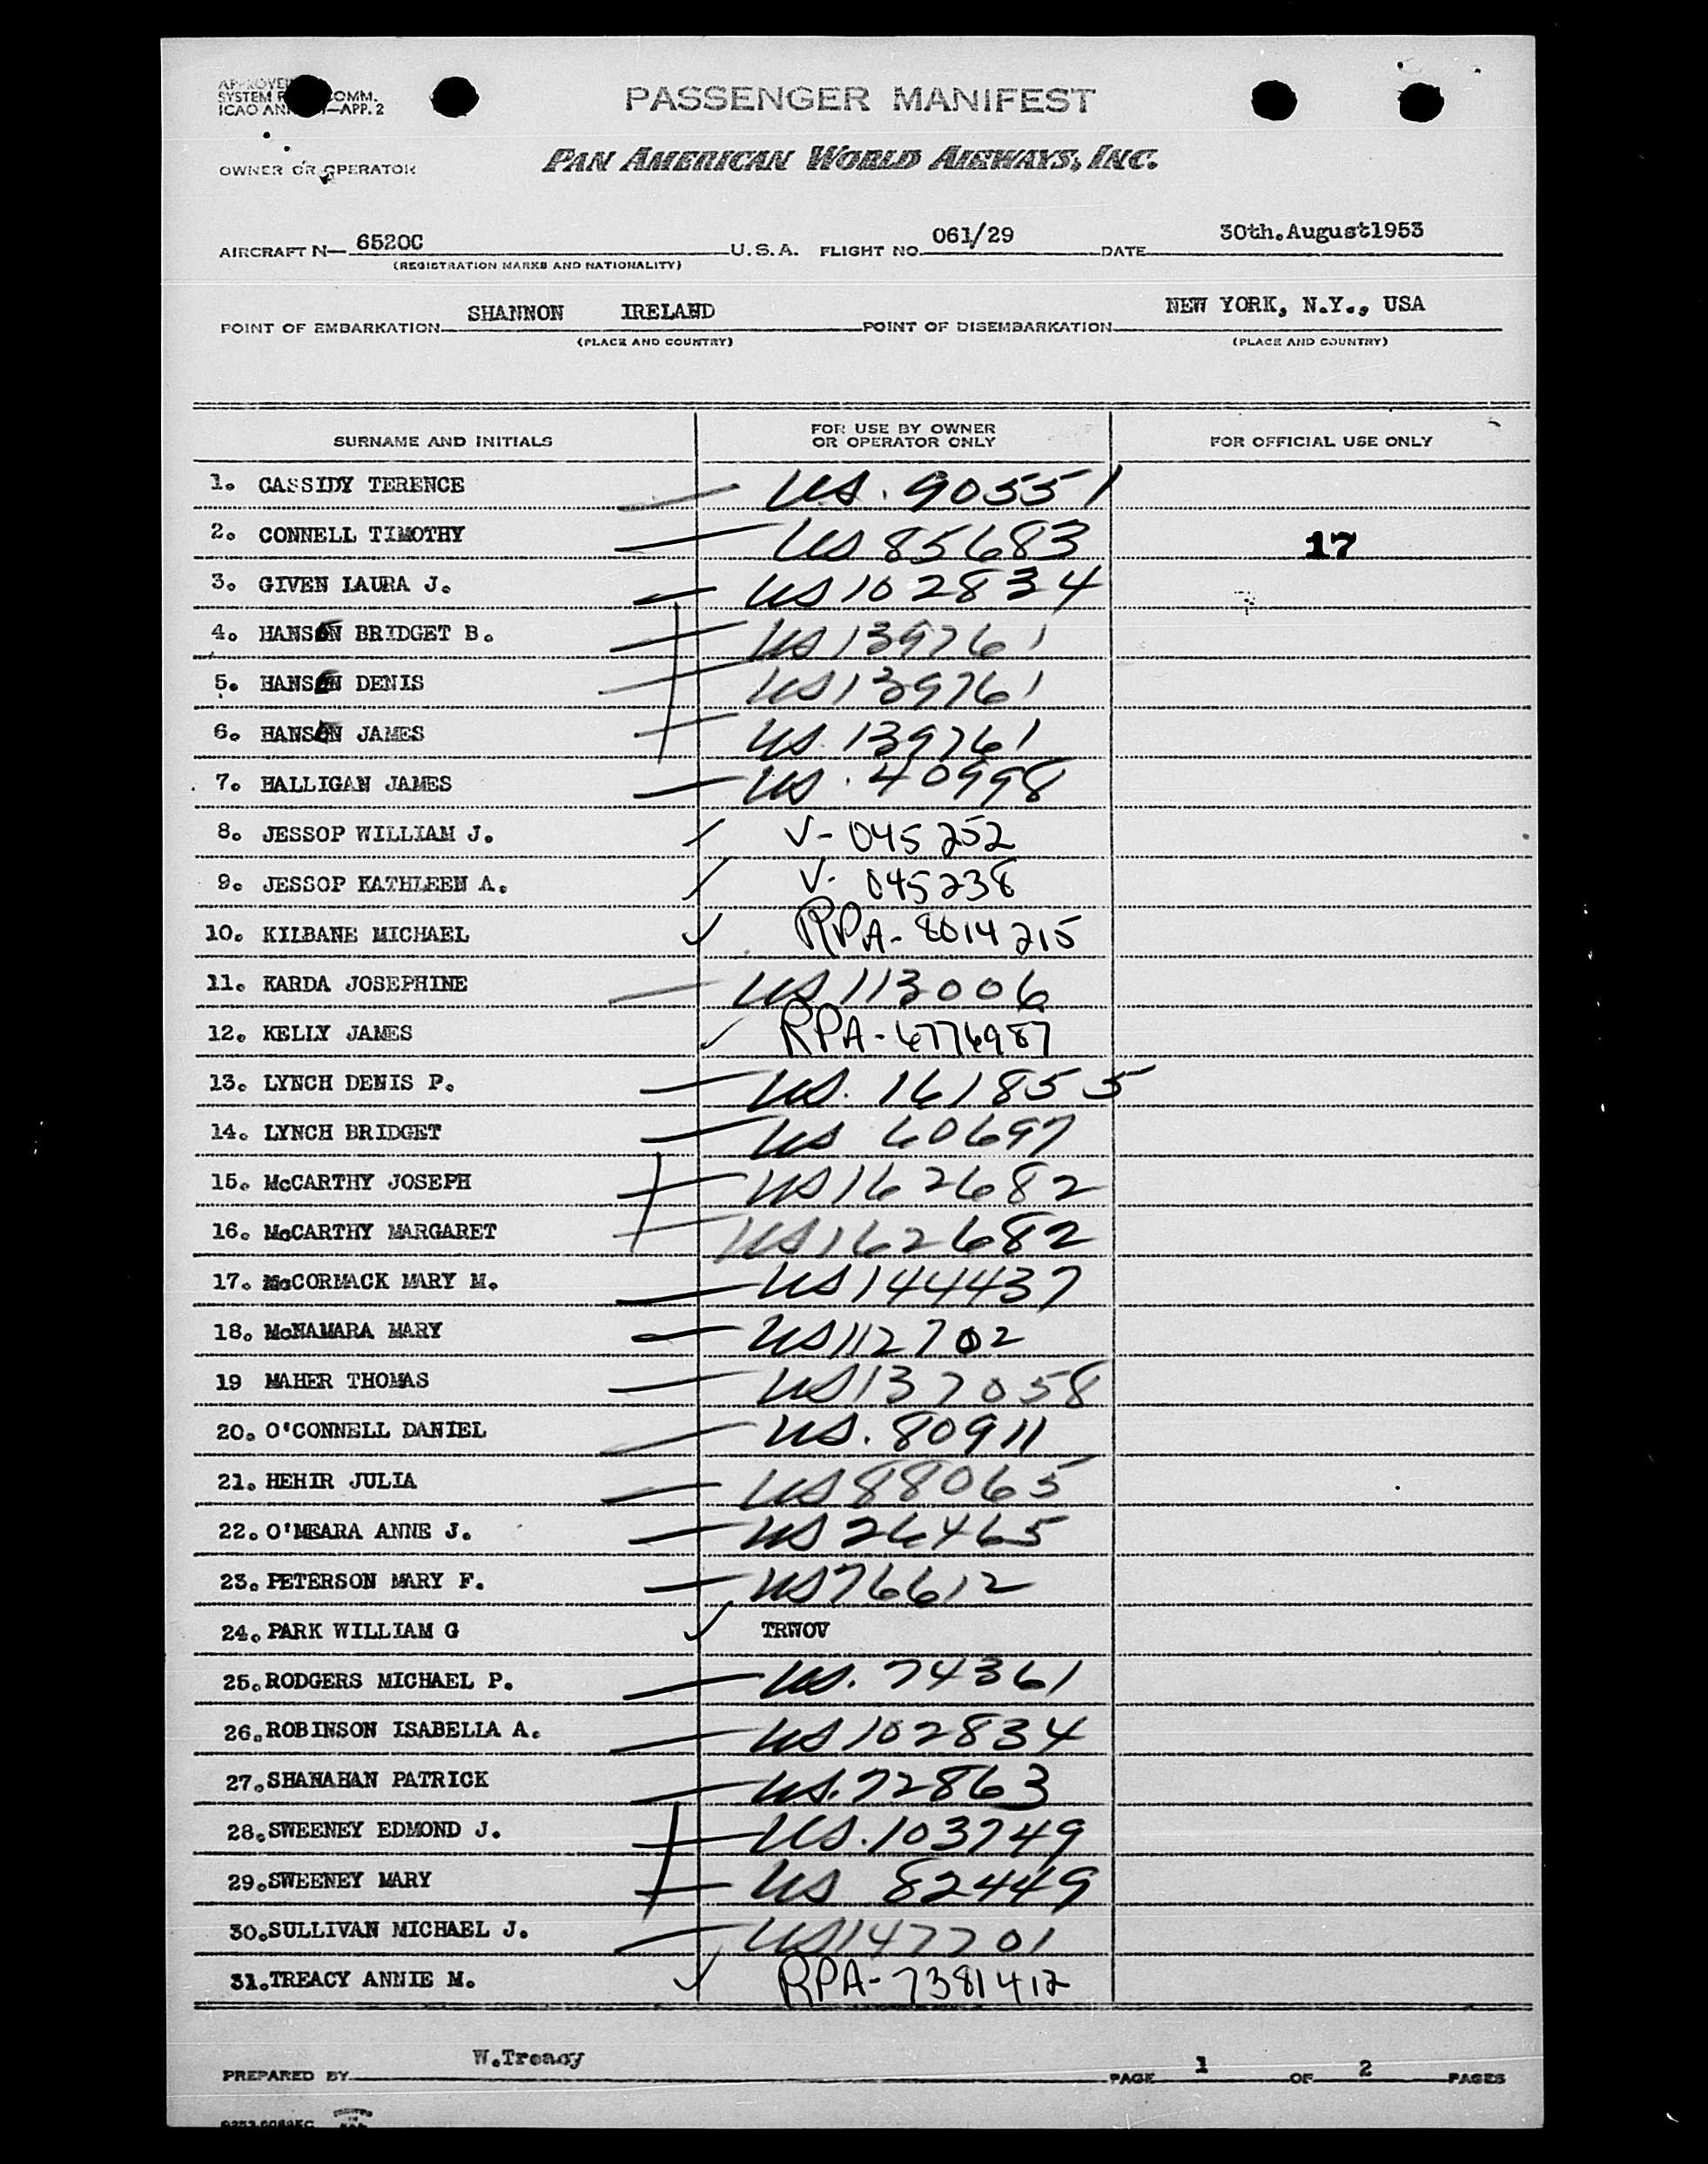 PASSENGER MANIFEST
SYSTEM COMM.
ICAO —APP. 2
OWNER OR OPERATOR PAN AMERICAN WORLD AIRWAYS, INC.
AIRCRAFT N— 6520C U.S.A. FLIGHT NO. 061/29 DATE 30th.August1953
(REGISTRATION MARKS AND NATIONALITY)
POINT OF EMBARKATION SHANNON IRELAND POINT OF DISEMBARKATION NEW YORK, N.Y., USA
(PLACE AND COUNTRY) (PLACE AND COUNTRY)
SURNAME AND INITIALS FOR USE BY OWNER OR OPERATOR ONLY FOR OFFICIAL USE ONLY
1. CASSIDY TERENCE US. 90551
2. CONNELL TIMOTHY US 85683 17
3. GIVEN LAURA J. US 102834
4. HANSEN BRIDGET B. US 139761
5. HANSEN DENIS US 139761
6. HANSEN JAMES US. 139761
7. HALLIGAN JAMES US. 40998
8. JESSOP WILLIAM J. V- 045252
9. JESSOP KATHLEEN A. V- 045238
10. KILBANE MICHAEL RPA- 8014215
11. KARDA JOSEPHINE US 113006
12. KELLY JAMES RPA- 6776987
13. LYNCH DENIS P. US. 161855
14. LYNCH BRIDGET US 60697
15. McCARTHY JOSEPH US 162682
16. McCARTHY MARGARET US 162682
17. McCORMACK MARY M. US 144437
18. McNAMARA MARY US 112702
19 MAHER THOMAS US 137058
20. O'CONNELL DANIEL US. 80911
21. HEHIR JULIA US 88065
22. O'MEARA ANNE J. US 26465
23. PETERSON MARY F. US 76612
24. PARK WILLIAM G TRWOV
25. RODGERS MICHAEL P. US. 74361
26. ROBINSON ISABELLA A. US 102834
27. SHANAHAN PATRICK US. 72863
28. SWEENEY EDMOND J. US. 103749
29. SWEENEY MARY US 82449
30. SULLIVAN MICHAEL J. US 147701
31. TREACY ANNIE M. RPA- 7381412
PREPARED BY W.Treacy PAGE 1 OF 2 PAGES